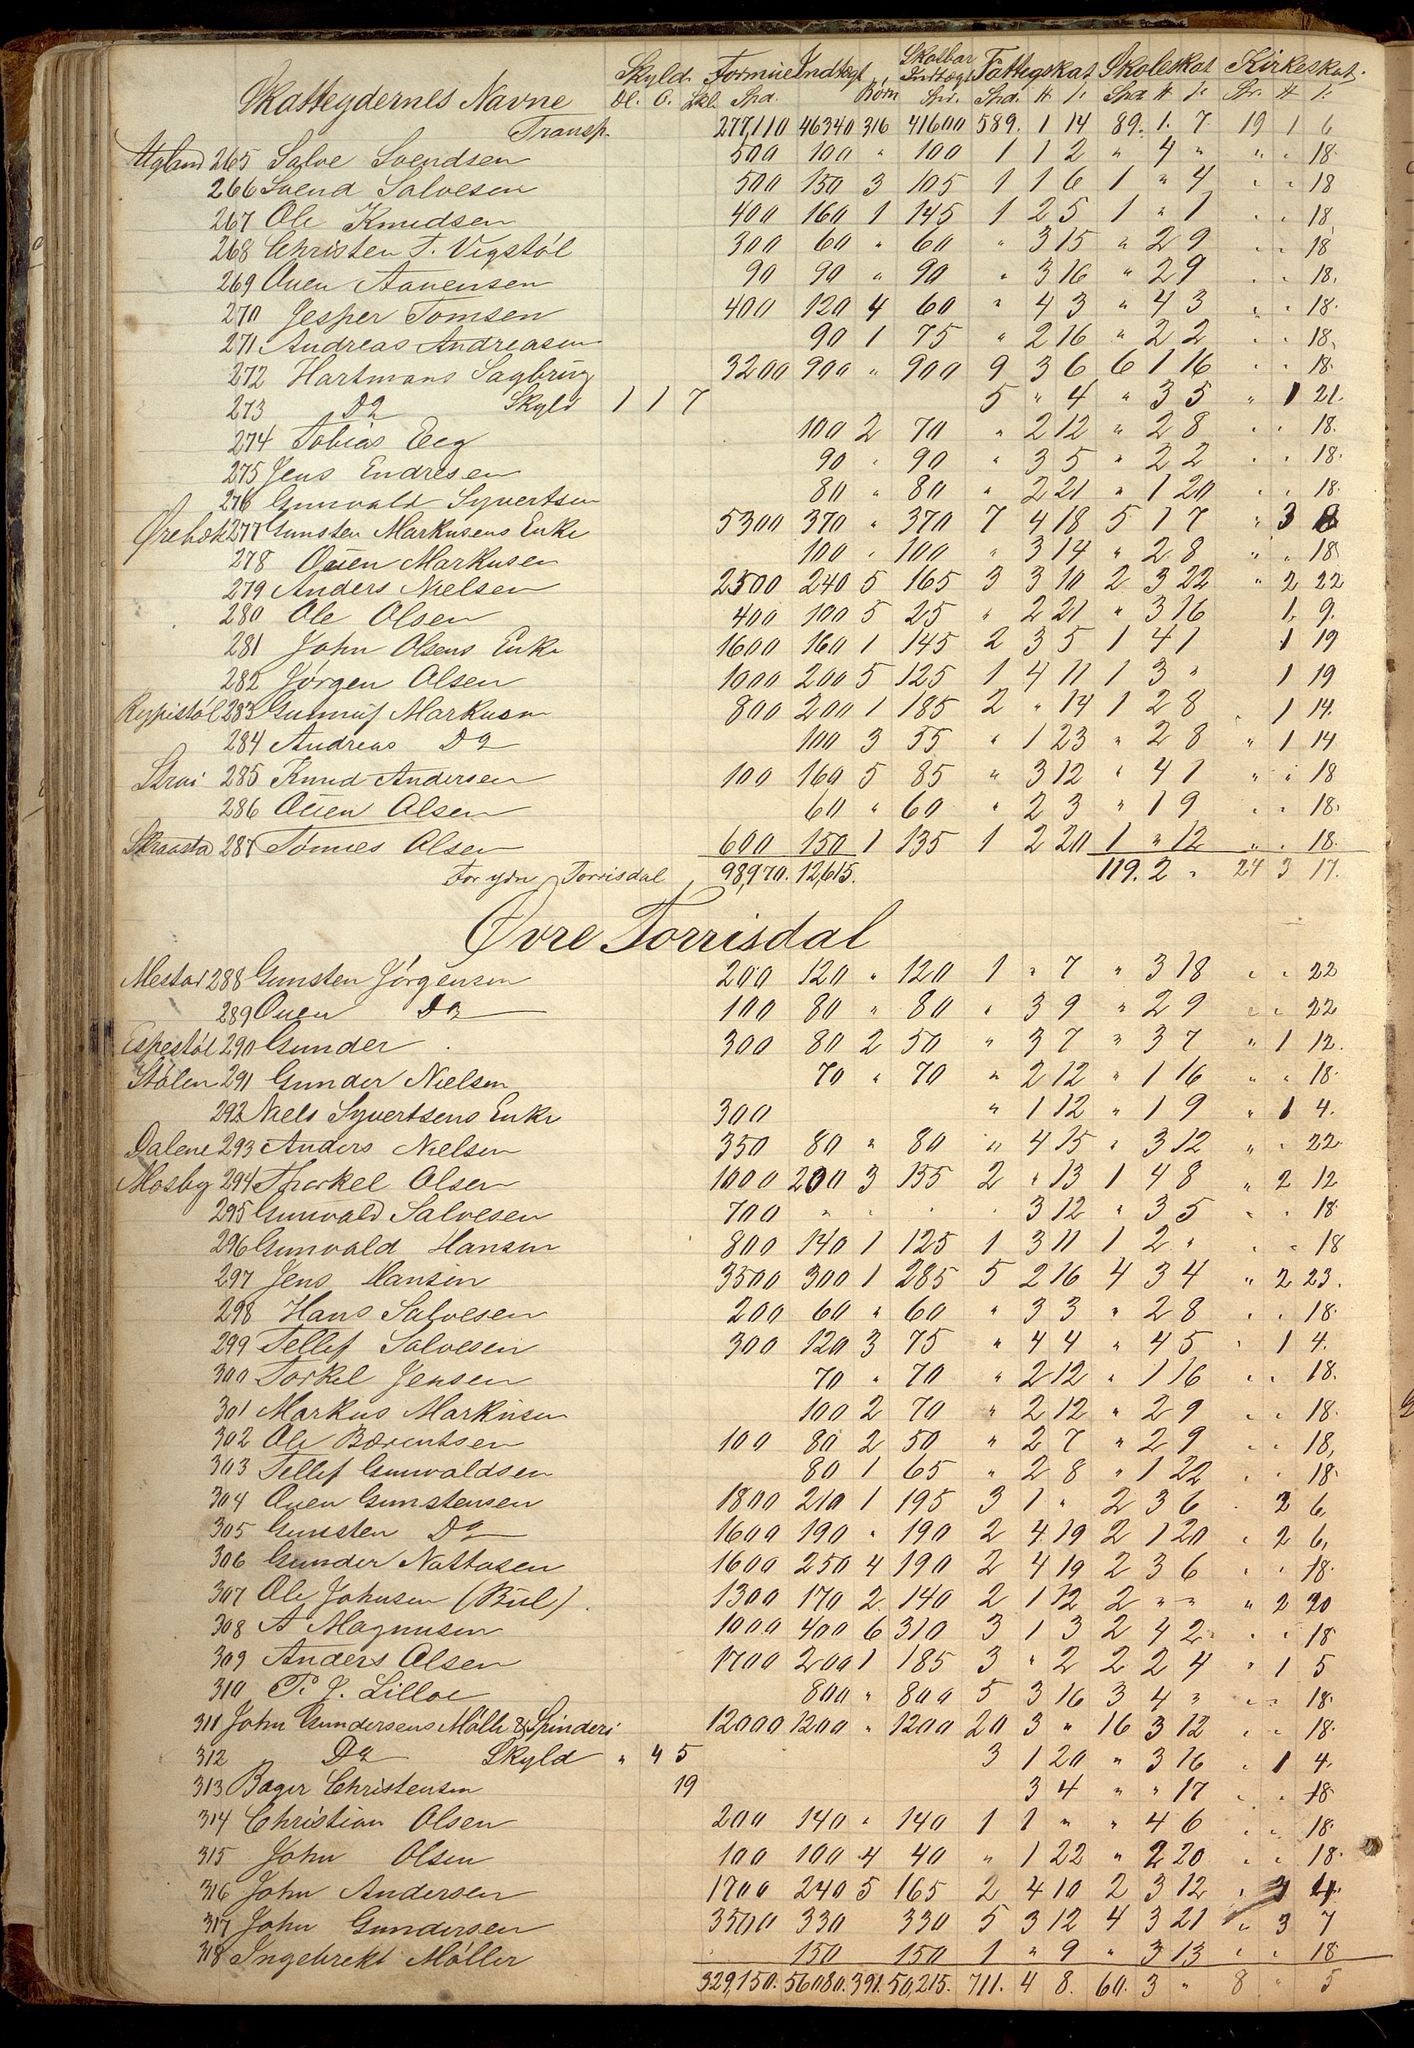 Skatteydernes Navne Skyld Formue Indtægt Børn Skatbar Indtægt Fattigskat Skoleskat Kirkeskat
Dl. O. Skl. Spd. Spr. Spd. # s. Spd # s. Spr. # s.
Transp. 277,110 46340 316 41600 589. 1 14 89. 1. 7. 19 1 6
Aagland 265 Salve Svendsen 500 100 " 100 1 1 2 " 4 " " " 18.
266 Svend Salvesen 500 150 3 105 1 1 6 1 " 4 " " 18
267 Ole Knudsen 400 160 1 145 1 2 5 1 " 1 " " 18
268 Christen T. Vigstøl 300 60 " 60 " 3 15 " 2 9 " " 18
269 Ouen Aanensen 90 90 " 90 " 3 16 " 2 9 " " 18.
270 Jesper Tomsen 400 120 4 60 " 4 3 " 4 3 " " 18.
271 Andreas Andreasen 90 1 75 " 2 16 " 2 2 " " 18.
272 Hartmans Sagbrug 3200 900 " 900 9 3 6 6 1 16 " " 18.
273 Do Skyld 1 1 7 5 " 4 " 3 5 " 1 21.
274 Tobias Eeg 100 2 70 " 2 12 " 2 8 " " 18.
275 Jens Endresen 90 " 90 " 3 5 " 2 2 " " 18.
276 Gunvald Syvertsen 80 " 80 " 2 21 " 1 20 " " 18.
Ørebæk 277 Gunsten Markusens Enke 5300 370 " 370 7 4 18 5 1 7 " 3 8
278 Ouen Markusen 100 " 100 " 3 14 " 2 8 " " 18
279 Anders Nielsen 2500 240 5 165 3 3 10 2 3 22 " 2 22
280 Ole Olsen 400 100 5 25 " 2 21 " 3 16 1. 9.
281 John Olsens Enke 1600 160 1 145 2 3 5 1 4 1 1 19
282 Jørgen Olsen 1000 200 5 125 1 4 11 1 3 " 1 19
Rypistøl 283 Gunnuf Markusen 800 200 1 185 2 " 14 1 2 8 " 1 14.
284 Andreas Do 100 3 55 " 1 23 " 2 8 " 1 14
Strai 285 Knud Andersen 100 160 5 85 " 3 12 " 4 1 " " 18
286 Ouen Olsen 60 " 60 " 2 3 " 1 9 " " 18.
Skraasta 287 Tønnes Olsen 600 150 1 135 1 2 20 1 " 12 " " 18.
For ydre Torrisdal 98,970. 12,615. 119. 2 " 24 3 17.
Øvre Torrisdal
Mestad 288 Gunsten Jørgensen 200 120 " 120 1 " 7 " 3 18 " " 22
289 Ouen Do 100 80 " 80 " 3 9 " 2 9 " " 22
Espestøl 290 Gunder 300 80 2 50 " 3 7 " 3 7 " 1 12.
Stølen 291 Gunder Nielsen 70 " 70 " 2 12 " 1 16 " " 18.
292 Niels Syvertsens Enke 300 " 1 12 " 1 9 " 1 4.
Dalene 293 Anders Nielsen 350 80 " 80 " 4 15 " 3 12 " " 22
Mosby 294 Thorkel Olsen 1000 200 3 155 2 " 13 1 4 8 " 2 12
295 Gunvald Salvesen 700 " " " " 3 12 " 3 5 " " 18
296 Gunvald Hansen 800 140 1 125 1 3 11 1 2 " " " 18
297 Jens Hansen 3500 300 1 285 5 2 16 4 3 4 " 2 23.
298 Hans Salvesen 200 60 " 60 " 3 3 " 2 8 " " 18.
299 Tellef Salvesen 300 120 3 75 " 4 4 " 4 5 " 1 4.
300 Torkel Jensen 70 " 70 " 2 12 " 1 16 " " 18.
301 Markus Markusen 100 2 70 " 2 12 " 2 9 " " 18.
302 Ole Bærentsen 100 80 2 50 " 2 7 " 2 9 " " 18.
303 Tellef Gunvaldsen 80 1 65 " 2 8 " 1 22 " " 18.
304 Ouen Gunstensen 1800 210 1 195 3 1 " 2 3 6 " 2 6,
305 Gunsten Do 1600 190 " 190 2 4 19 2 1 20 " 2 6,
306 Gunder Nattosen 1600 250 4 190 2 4 19 2 3 6 " " 18.
307 Ole Johnsen (Bul). 1300 170 2 140 2 1 12 2 " " " 2 20
308 A Magnusen 1000 400 6 310 3 1 3 2 4 2 " " 18
309 Anders Olsen 1700 200 1 185 3 " 2 2 2 4 " 1 5
310 P. J. Lilloe 800 " 800 5 3 16 3 4 " " " 18.
311 John Gundersens Mølle & Spinderi 12000 1200 " 1200 20 3 " 16 3 12 " " 18.
312 Do Skyld " 4 5 3 1 20 " 3 16 " 1 4.
313 Bager Christensen 19 3 4 " " 17 " " 18
314 Christian Olsen 200 140 " 140 1 1 " " 4 6 " " 18.
315 John Olsen 100 100 4 40 " 1 22 " 2 20 " " 18.
316 John Andersen 1700 240 5 165 2 4 10 2 3 12 "
317 John Gundersen 3500 330 330 5 3 12 4 3 21 " 3 7
318 Ingebrekt Møller " 150 150 1 " 9 " 3 13 " " 18
329,150. 56080. 391. 50,215. 711. 4 8. 60. 3 " 8 " 5